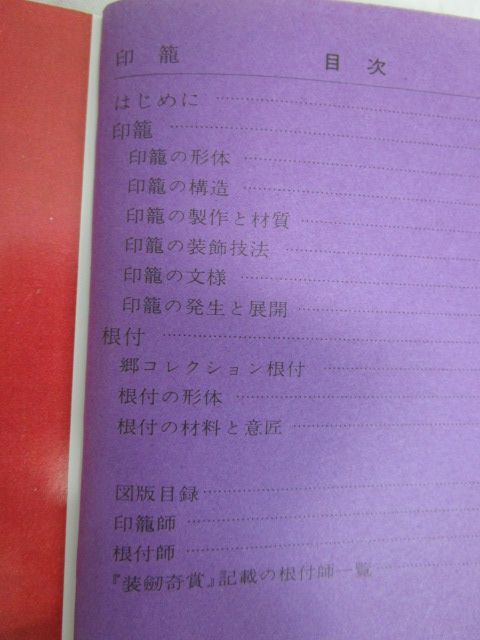 印籠 目次
はじめに
印籠
印籠の形体
印籠の構造
印籠の製作と材質
印籠の装飾技法
印籠の文様
印籠の発生と展開
根付
郷コレクション根付
根付の形体
根付の材料と意匠
図版目録
印籠師
根付師
『装劒奇賞』記載の根付師一覧